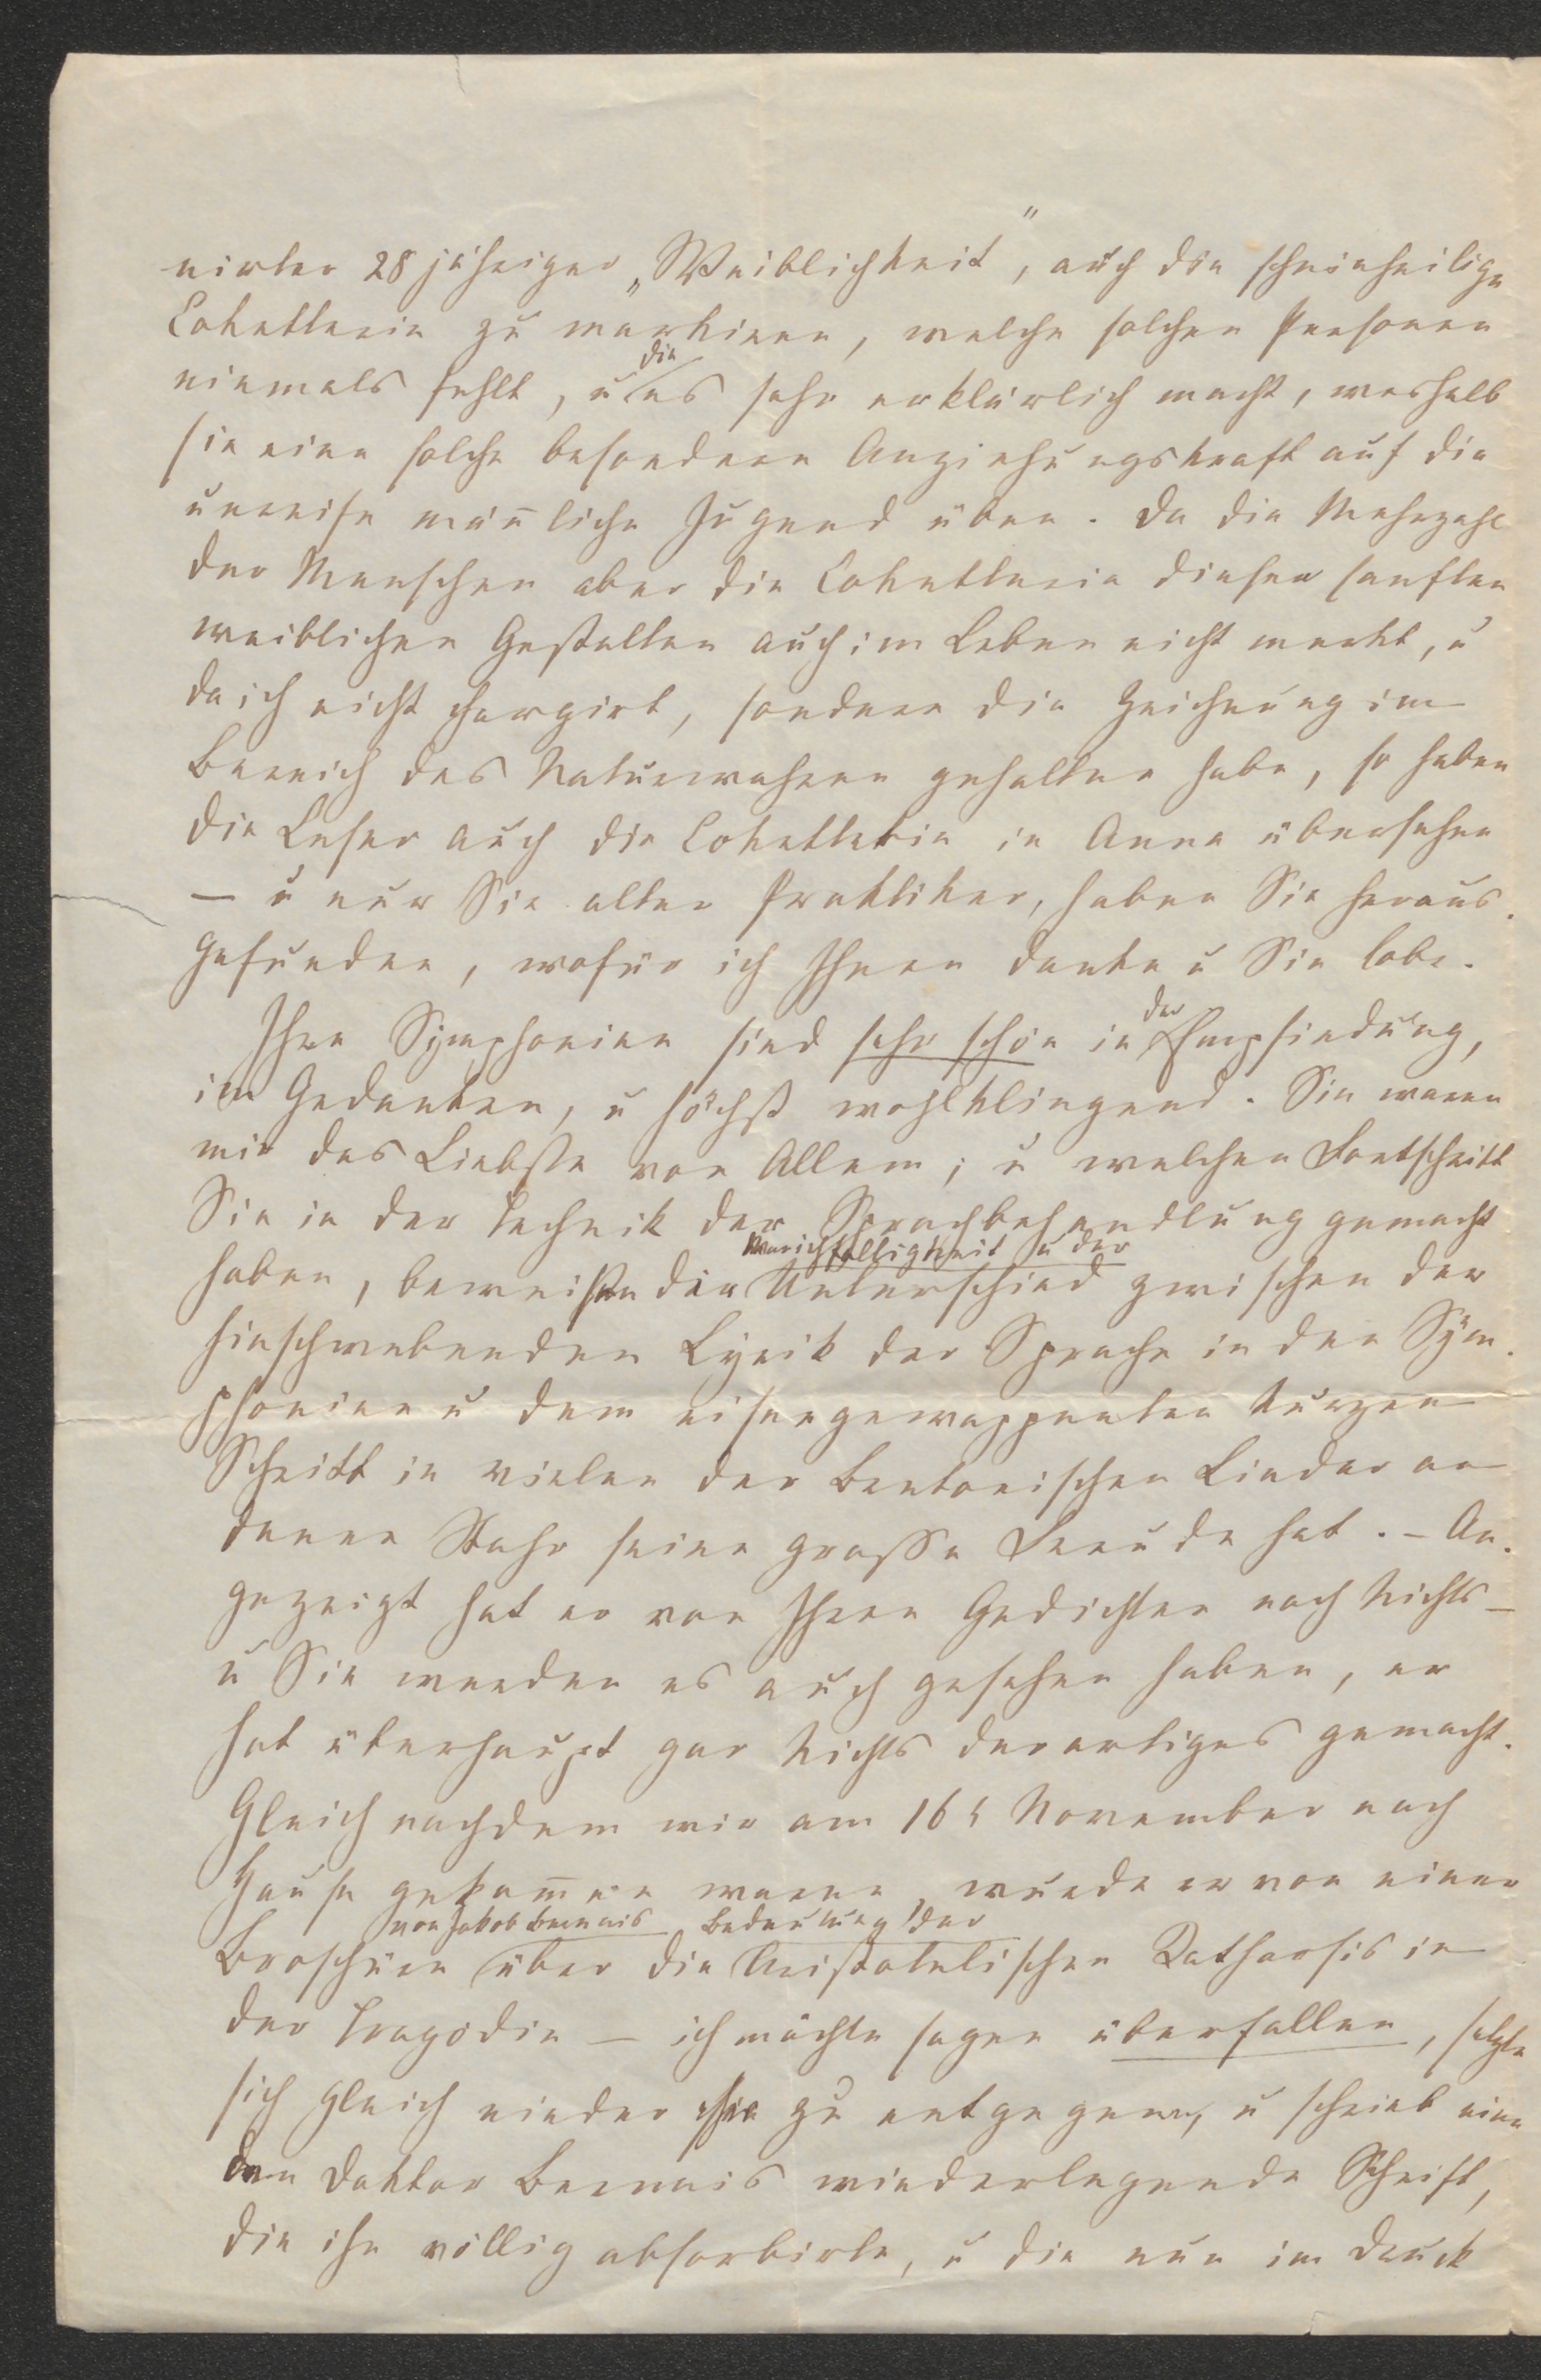 nirter 28 jähriger „Weiblichkeit", auch die scheinheilige
Coketterie zu markiren, welche solchen Personen
niemals fehlt, u die es sehr erklärlich macht, weshalb
sie eine solche besondere Anziehungskraft auf die
unreife mäñliche Jugend üben. Da die Mehrzahl
der Menschen aber die Coketterie dieser sanften
weiblichen Gestalten auch im Leben nicht merkt, u
da ich nicht chargirt, sondern die Zeichnung im
Bereich des Naturwahren gehalten habe, so haben
die Leser auch die Coketterie in Anna übersehen
— u nur Sie alter Praktiker, haben Sie heraus-
gefunden, wofür ich Ihnen danke u Sie lobe.
Ihre Symphonien sind sehr schön in der Empfindung,
im Gedanken, u höchst wohlklingend. Sie waren
mir das Liebste von Allem; u welchen Fortschritt
Sie in der Technik der Sprachbehandlung gemacht
haben, beweisen die Manichfaltigkeit u der Unterschied zwischen der
hinschwebenden Lyrik der Sprache in den Sym-
phonien u dem eisengewappneten kurzen
Schritt in vielen der Bretonischen Lieder an
denen Stahr seine grosse Freude hat. – An-
gezeigt hat er von Ihren Gedichten noch Nichts –
u Sie werden es auch gesehen haben, er
hat überhaupt gar Nichts derartiges gemacht.
Gleich nachdem wir am 16t November nach
Hause gekom̃en waren, wurde er von einer
Broschüre von Jakob Bernais über die Bedeutung der Aristotelischen Katharsis in
der Tragödie — ich möchte sagen überfallen, setzte
sich gleich nieder ihr zu entgegnen, u schrieb eine
den Doktor Bernais wiederlegende Schrift,
die ihn völlig absorbirte, u die nun im Druck